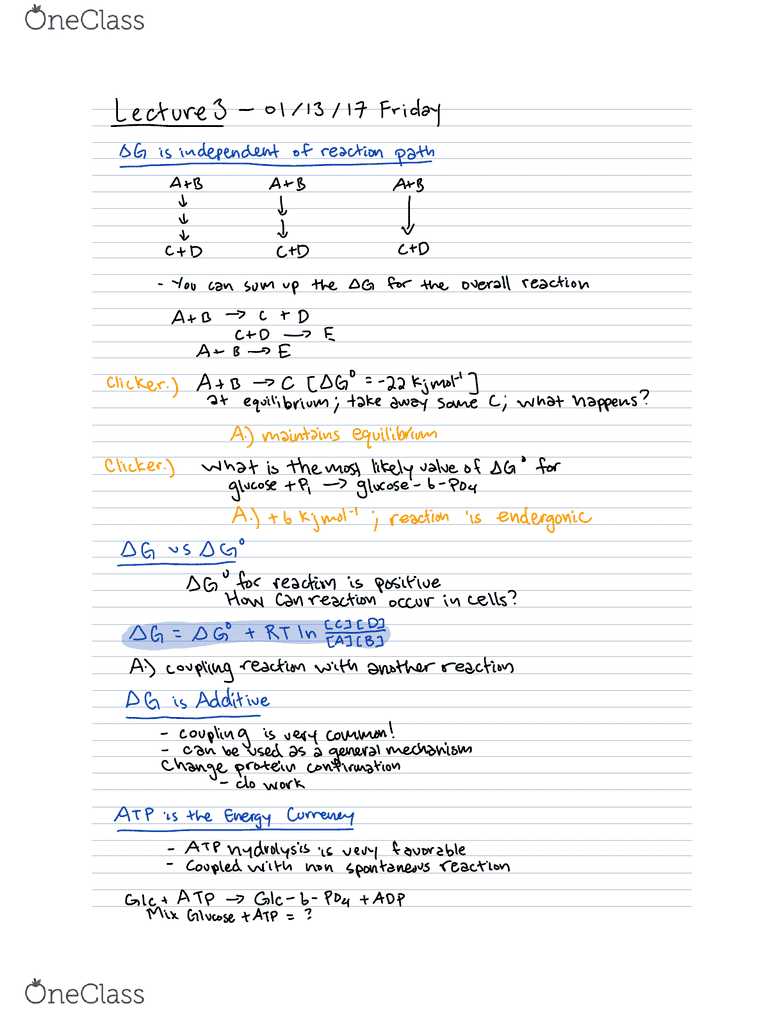 OneClass
Lecture 3 - 01/13/17 Friday
ΔG is independent of reaction path
A+B A+B A+B
↓ ↓ ↓
↓ ↓
↓
C+D C+D C+D
- You can sum up the ΔG for the overall reaction
A+B → C + D
C+D → E
A+B → E
Clicker.) A+B → C [ΔG° = -22 kjmol⁻¹]
at equilibrium; take away some C; what happens?
A.) maintains equilibrium
Clicker.) What is the most likely value of ΔG° for
glucose + Pi → glucose-6-PO4
A.) +6 kjmol⁻¹ ; reaction is endergonic
ΔG vs ΔG°
ΔG° for reaction is positive
How can reaction occur in cells?
ΔG = ΔG° + RT ln [C][D]/[A][B]
A.) coupling reaction with another reaction
ΔG is Additive
- coupling is very common!
- can be used as a general mechanism
Change protein confirmation
- do work
ATP is the Energy Currency
- ATP hydrolysis is very favorable
- Coupled with non spontaneous reaction
Glc + ATP → Glc-6-PO4 + ADP
Mix Glucose + ATP = ?
OneClass